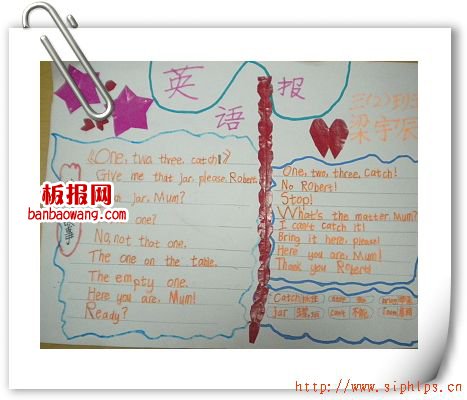 英语报
三(2)班
梁宇辰
《One, two, three, catch!》
Give me that jar, please, Robert.
jar, Mum?
one?
No, not that one.
The one on the table.
The empty one.
Here you are, Mum!
Ready?
One, two, three, catch!
No Robert!
Stop!
What's the matter, Mum?
I can't catch it!
Bring it here, please!
Here you are, Mum!
Thank you Robert!
Catch 抓住
jar
can't 不能
板报网
banbaowang.com
http://www.siphlps.cn